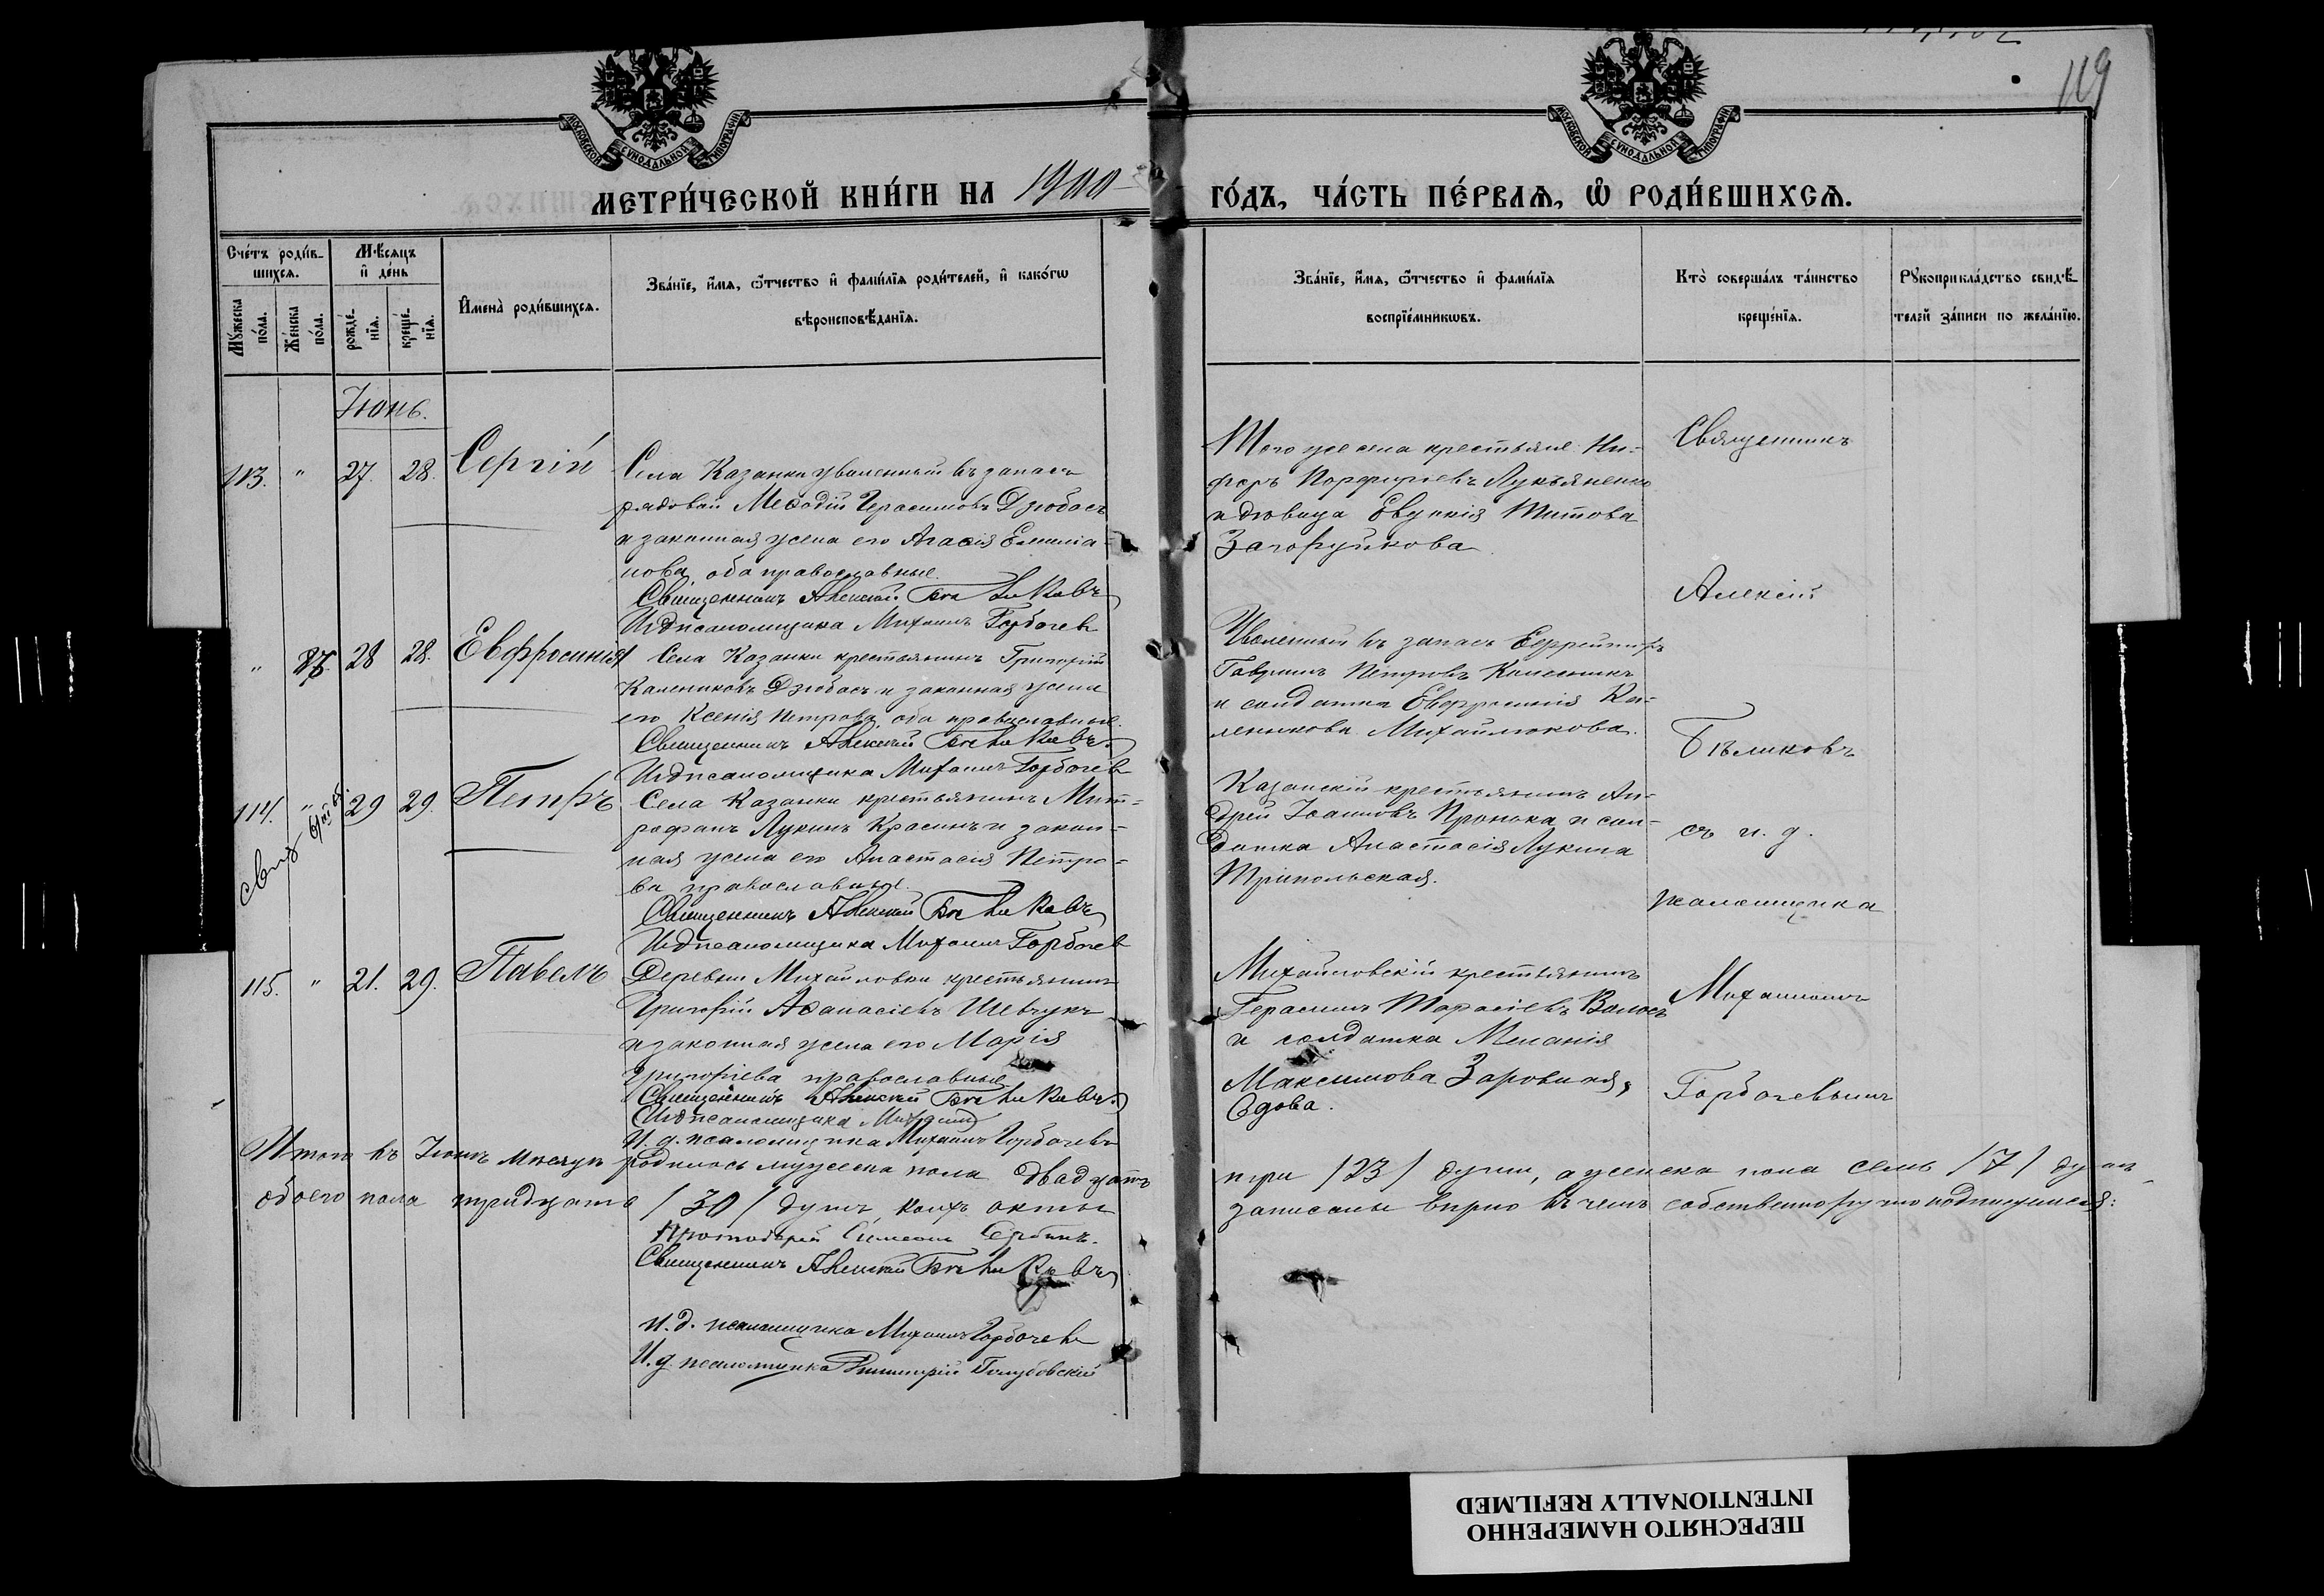 119
МОСКОВСКОЙ СѴНОДАЛЬНОЙ ТИПОГРАФІИ
МОСКОВСКОЙ СѴНОДАЛЬНОЙ ТИПОГРАФІИ
МЕТРИ́ЧЕСКОЙ КНИ́ГИ НА 1900 ГО́ДЪ, ЧА́СТЬ ПЕ́РВАѦ, Ѡ РОДИ́ВШИХСѦ.
Сче́тъ роди́в-
шихся.
Мѣ́сяцъ
и де́нь
Мꙋ́жеска
по́ла.
Же́нска
по́ла.
рожде́-
нїѧ.
креще́-
нїѧ.
И́мена̀ роди́вшихсѧ.
Зва́нїе, и́мѧ, ѻ́тчество и фами́лїѧ роди́телей, и како́гѡ
вѣроисповѣ́данїѧ.
Зва́нїе, и́мѧ, ѻ́тчество и фами́лїѧ
воспрїе́мникѡвъ.
Кто̀ соверша́лъ та́инство
креще́нїѧ.
Рꙋкоприкла́дство свидѣ́-
телей за́писи по жела́нїю.
Іюнь.
113. " 27. 28. Сергій
Села Казанки уволенный въ запасъ
рядовой Меѳодій Герасимовъ Дзюбасъ
и законная жена его Агаѳія Емилiа-
нова, оба православные.
Священникъ Алексій Бѣликовъ
И.д. псаломщика Михаилъ Горбачевъ
Того же села крестьяне: Ни-
форъ Порфирьевъ Лукьяненко
и дѣвица Евдокія Титова
Загоруйкова.
Священникъ
Алексій
Бѣликовъ
съ и. д.
псаломщика
Михаиломъ
Горбачевымъ
" 28 28. Евфросинія
Села Казанки крестьянинъ Григорій
Калениковъ Дзюбасъ и законная жена
его Ксенія Петрова, оба православные.
Священникъ Алексій Бѣликовъ
И.д. псаломщика Михаилъ Горбачевъ
Уволенный въ запасъ Ефрейторъ
Гавріилъ Петровъ Колесникъ
и солдатка Евфросинія Ка-
леникова Михайлюкова.
114. " 29 29. Петръ
Села Казанки крестьянинъ Мит-
рофанъ Лукинъ Красинъ и закон-
ная жена его Анастасія Петро-
ва православные.
Священникъ Алексій Бѣликовъ
И.д. псаломщика Михаилъ Горбачевъ
Казанскій крестьянинъ Ан-
дрей Іоанновъ Пронька и сол-
датка Анастасія Лукина
Трипольская.
115. " 21. 29. Павелъ
Деревни Михайловки крестьянинъ
Григорій Аѳанасіевъ Шевчукъ
и законная жена его Марія
Григоріева православные
Священникъ Алексій Бѣликовъ
И.д. псаломщика
И. д. псаломщика Михаилъ Горбачевъ
Михайловскій крестьянинъ
Герасимъ Тарасіевъ Волосъ
и солдатка Меланія
Максимова Заровная,
вдова.
Итого въ Іюнѣ мѣсяцѣ родилось мужеска пола двадцать три /23/ души, а женска пола семь /7/ душъ,
обоего пола тридцать /30/ душъ коихъ акты записаны вѣрно въ чемъ собственноручно подписуемся:
Протоіерей Симеонъ Сербинъ.
Священникъ Алексій Бѣликовъ
И. д. псаломщика Михаилъ Горбачевъ
И. д. псаломщика Димитрій Голубовскій
ПЕРЕСНЯТО НАМЕРЕННО
INTENTIONALLY REFILMED